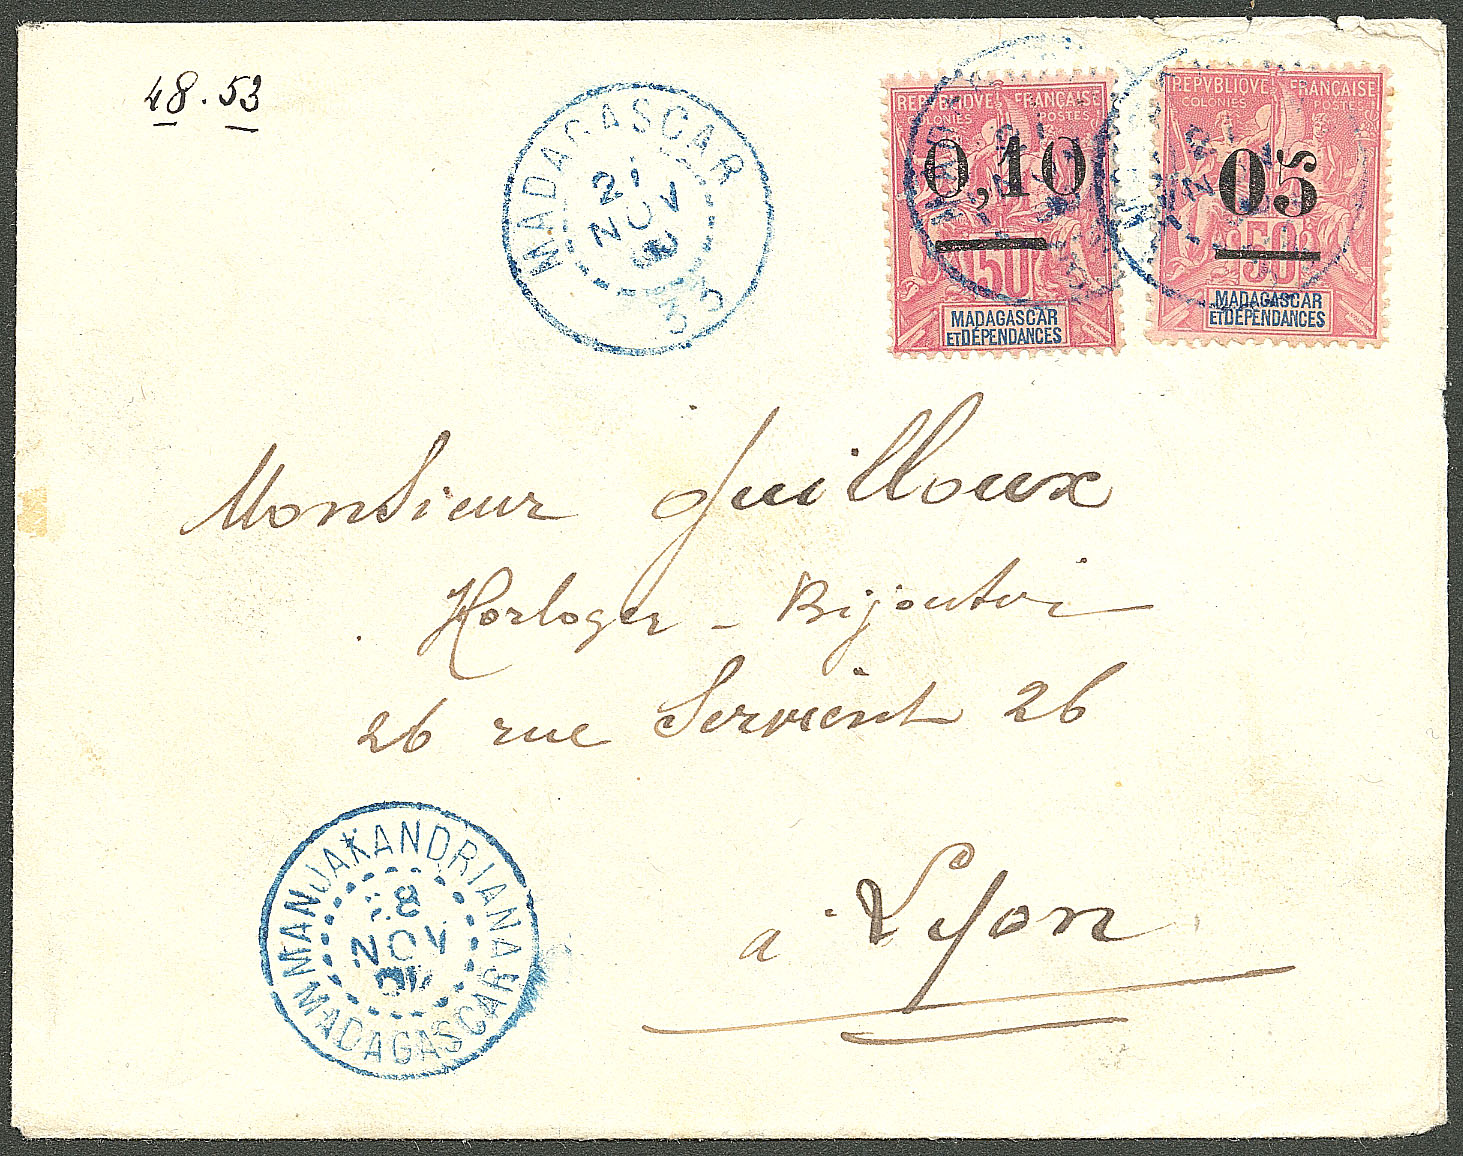 48.53
MADAGASCAR
21
NOV
33
REPVBLIQVE FRANÇAISE
COLONIES POSTES
0,10
50
MADAGASCAR
ET DÉPENDANCES
REPVBLIQVE FRANÇAISE
COLONIES POSTES
05
50
MADAGASCAR
ET DÉPENDANCES
Monsieur Guilloux
Horloger - Bijoutier
26 rue Servient 26
à Lyon
MANJAKANDRIANA
18
NOV
MADAGASCAR